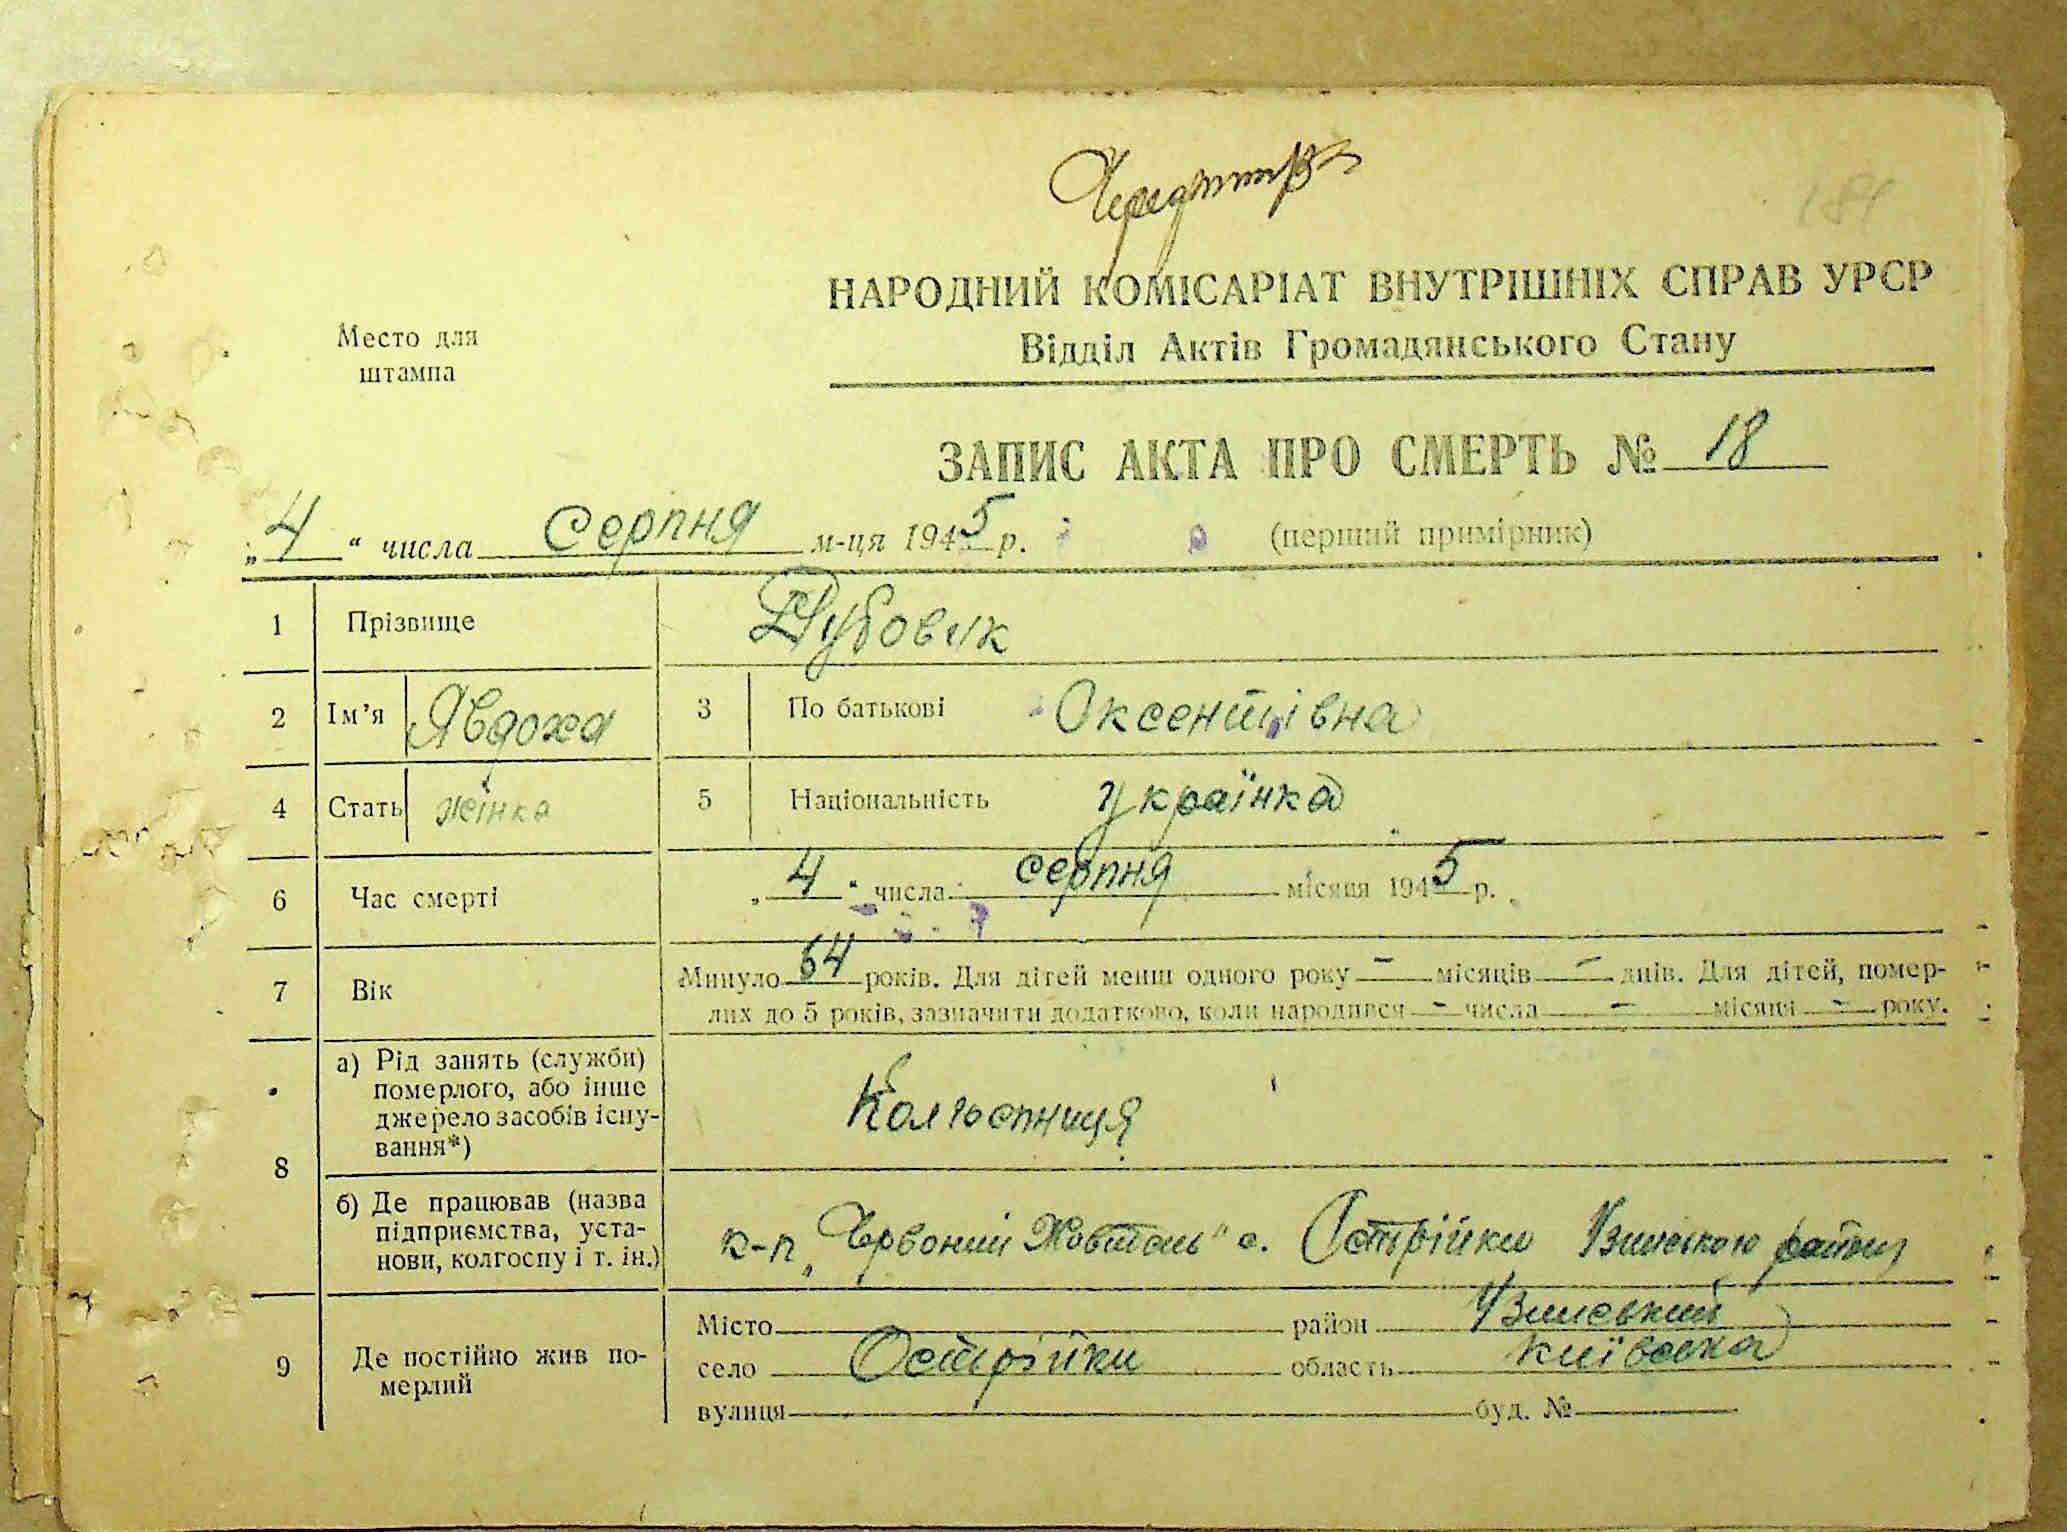 184
НАРОДНИЙ КОМІСАРІАТ ВНУТРІШНІХ СПРАВ УРСР
Відділ Актів Громадянського Стану
Место для
штампа
ЗАПИС АКТА ПРО СМЕРТЬ № 18
„4“ числа серпня м-ця 1945 р. (перший примірник)
1 Прізвище Дубовик
2 Ім’я Явдоха 3 По батькові Оксентіівна
4 Стать жінка 5 Національність українка
6 Час смерті „4“ числа серпня місяця 1945 р.
7 Вік Минуло 64 років. Для дітей менш одного року – місяців – днів. Для дітей, помер-
лих до 5 років, зазначити додатково, коли народився – числа – місяця – року.
8 а) Рід занять (служби)
померлого, або інше
джерело засобів існу-
вання*)
Колгоспниця
б) Де працював (назва
підприємства, уста-
нови, колгоспу і т. ін.)
к-п „Червоний Жовтень“ с. Острійки Узинського району
9 Де постійно жив по-
мерлий
Місто район Узинський
село Острійки область Київська
вулиця буд. №